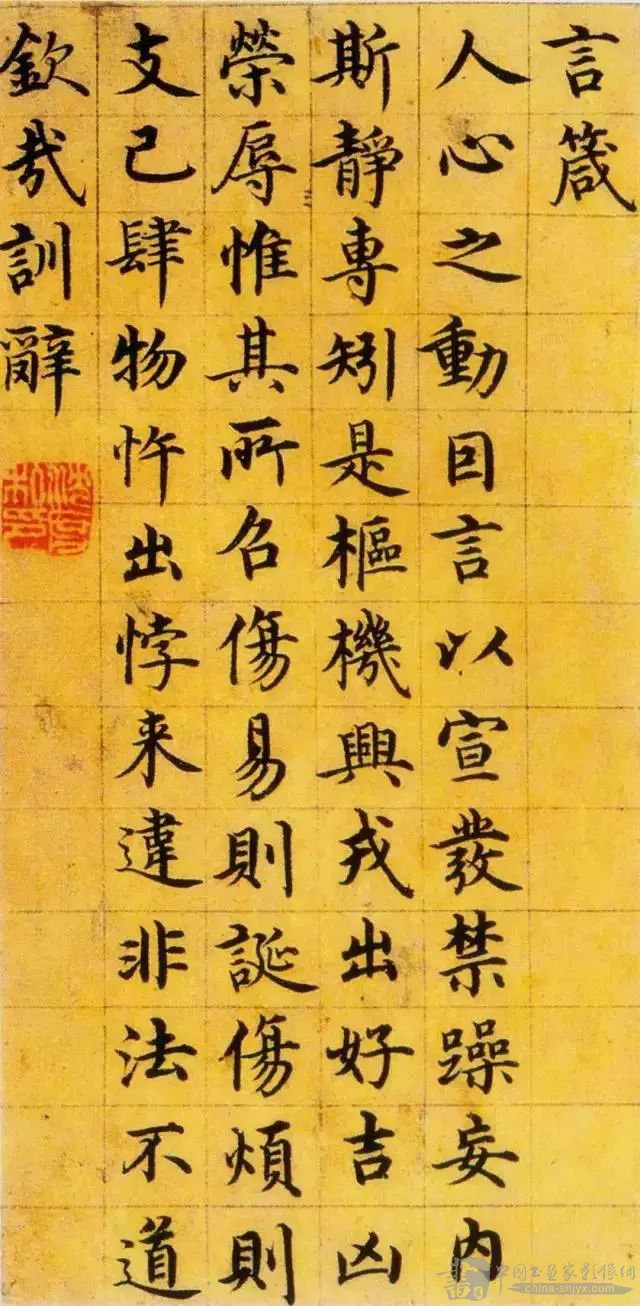 言箴
人心之動囙言以宣發禁躁妄内
斯靜專矧是樞機興戎出好吉凶
榮辱惟其所召傷易則誕傷煩則
支己肆物忤出悖来違非法不道
欽哉訓辭
china-shjyx.com